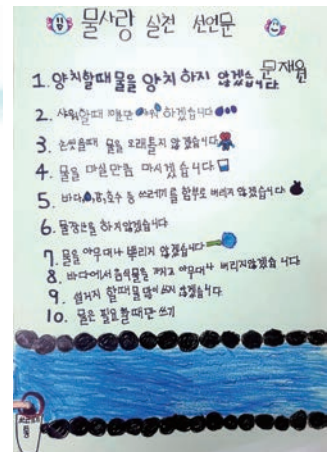 물사랑 실천 선언문
문재원
1. 양치할때 물을 양치 하지 않겠습니다
2. 샤워할때 하겠습니다
3. 손씻을때 물을 오래틀지 않겠습니다
4. 물을 마실만큼 마시겠습니다
5. 바다, 강, 호수 등 쓰레기를 함부로 버리지 않겠습니다
6. 물장난을 하지않겠습니다
7. 물을 아무대나 뿌리지 않겠습니다
8. 바다에서 음식물을 아무대나 버리지않겠습니다
9. 설거지 할때 물 많이 쓰지 않겠습니다
10. 물은 필요할때만 쓰기
쓰레기통